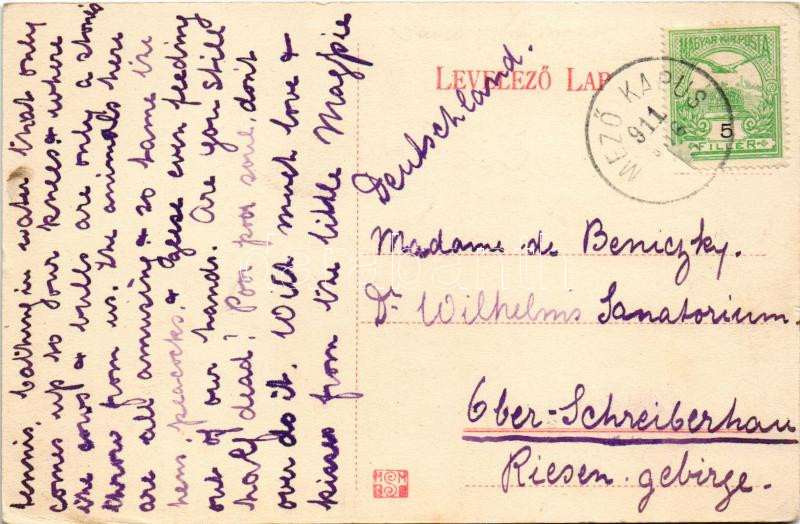 tennis, bathing in water that only
comes up to your knees & where
the cows & bulls are only a stone's
throw from us. The animals here
are all amusing & so tame the
hens, peacocks, & geese even feeding
out of our hands. Are you still
half dead? Poor poor soul, don't
over do it. With much love &
kisses from the little Magpie
LEVELEZŐ LAP
Deutschland.
MAGYAR KIR. POSTA
5
FILLÉR
MEZŐ KAPUS
911
Madame de Beniczky.
Dr Wilhelms Sanatorium.
Ober-Schreiberhau
Riesen. gebirge.
darabanth